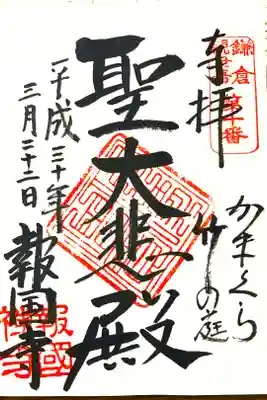 奉拝
鎌倉
第十番
かまくら
竹の庭
聖大悲殿
平成三十年
三月三十二日
報国寺
報國
禅寺